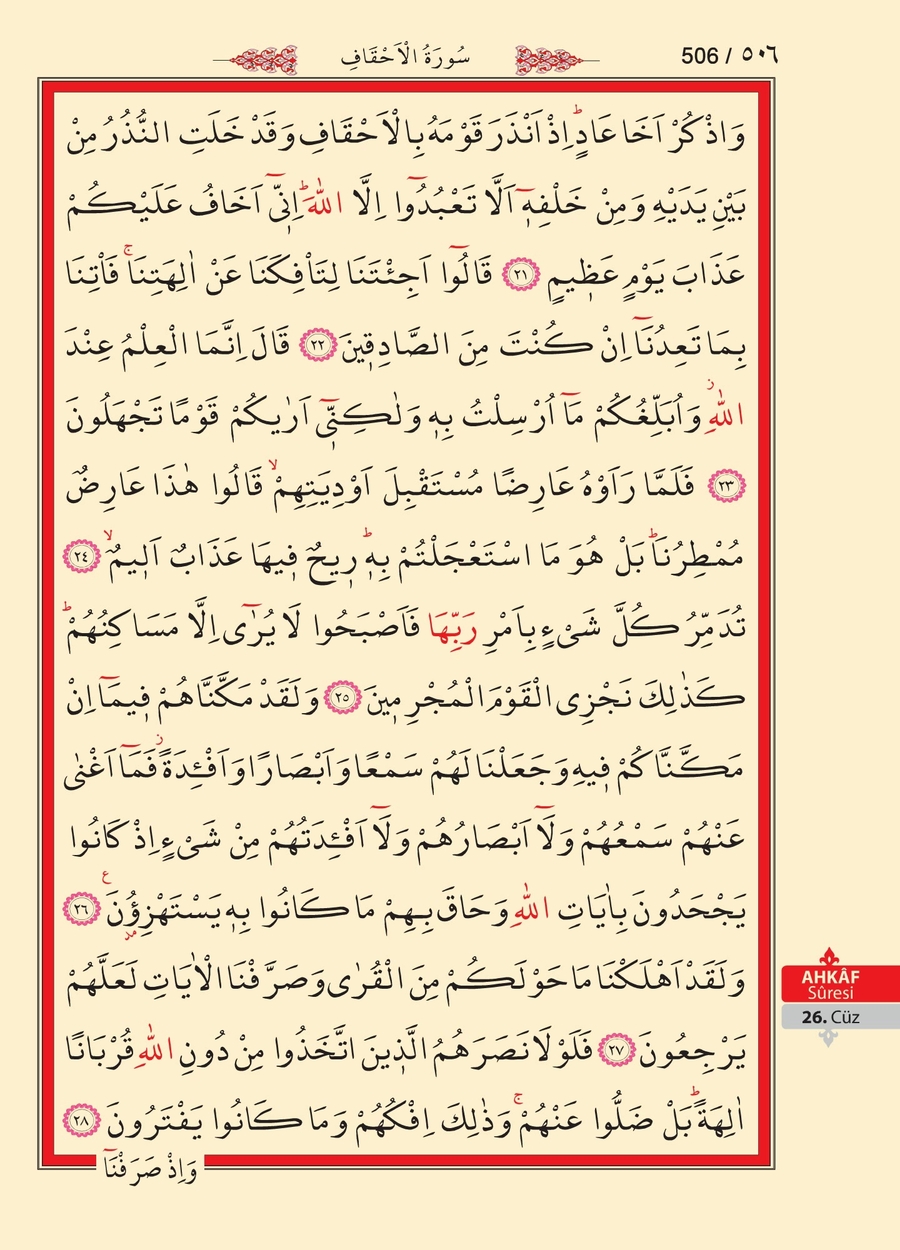 506 / ٥٠٦
سُورَةُ الْاَحْقَافِ
وَاذْكُرْ اَخَا عَادٍۜ اِذْ اَنْذَرَ قَوْمَهُ بِالْاَحْقَافِ وَقَدْ خَلَتِ النُّذُرُ مِنْ
بَيْنِ يَدَيْهِ وَمِنْ خَلْفِه۪ٓ اَلَّا تَعْبُدُٓوا اِلَّا اللّٰهَۜ اِنّ۪ٓي اَخَافُ عَلَيْكُمْ
عَذَابَ يَوْمٍ عَظ۪يمٍ ﴿٢١﴾ قَالُٓوا اَجِئْتَنَا لِتَأْفِكَنَا عَنْ اٰلِهَتِنَاۚ فَأْتِنَا
بِمَا تَعِدُنَٓا اِنْ كُنْتَ مِنَ الصَّادِق۪ينَ ﴿٢٢﴾ قَالَ اِنَّمَا الْعِلْمُ عِنْدَ
اللّٰهِۘ وَاُبَلِّغُكُمْ مَٓا اُرْسِلْتُ بِه۪ وَلٰكِنّ۪ٓي اَرٰيكُمْ قَوْمًا تَجْهَلُونَ
﴿٢٣﴾ فَلَمَّا رَاَوْهُ عَارِضًا مُسْتَقْبِلَ اَوْدِيَتِهِمْۙ قَالُوا هٰذَا عَارِضٌ
مُمْطِرُنَاۜ بَلْ هُوَ مَا اسْتَعْجَلْتُمْ بِه۪ۜ ر۪يحٌ ف۪يهَا عَذَابٌ اَل۪يمٌۙ ﴿٢٤﴾
تُدَمِّرُ كُلَّ شَيْءٍ بِاَمْرِ رَبِّهَا فَاَصْبَحُوا لَا يُرٰٓى اِلَّا مَسَاكِنُهُمْۜ
كَذٰلِكَ نَجْزِي الْقَوْمَ الْمُجْرِم۪ينَ ﴿٢٥﴾ وَلَقَدْ مَكَّنَّاهُمْ ف۪يمَٓا اِنْ
مَكَّنَّاكُمْ ف۪يهِ وَجَعَلْنَا لَهُمْ سَمْعًا وَاَبْصَارًا وَاَفْـِٔدَةًۘ فَمَٓا اَغْنٰى
عَنْهُمْ سَمْعُهُمْ وَلَٓا اَبْصَارُهُمْ وَلَٓا اَفْـِٔدَتُهُمْ مِنْ شَيْءٍ اِذْ كَانُوا
يَجْحَدُونَ بِاٰيَاتِ اللّٰهِ وَحَاقَ بِهِمْ مَا كَانُوا بِه۪ يَسْتَهْزِؤُ۫نَ۟ ﴿٢٦﴾
وَلَقَدْ اَهْلَكْنَا مَا حَوْلَكُمْ مِنَ الْقُرٰى وَصَرَّفْنَا الْاٰيَاتِ لَعَلَّهُمْ
يَرْجِعُونَ ﴿٢٧﴾ فَلَوْلَا نَصَرَهُمُ الَّذ۪ينَ اتَّخَذُوا مِنْ دُونِ اللّٰهِ قُرْبَانًا
اٰلِهَةًۜ بَلْ ضَلُّوا عَنْهُمْۚ وَذٰلِكَ اِفْكُهُمْ وَمَا كَانُوا يَفْتَرُونَ ﴿٢٨﴾
وَاِذْ صَرَفْنَٓا
AHKÂF
Sûresi
26. Cüz